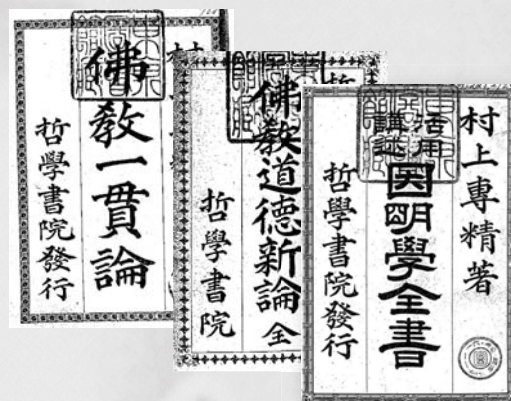 佛教一貫論
哲學書院發行
佛教道德新論 全
哲學書院
村上專精著
活用講述
因明學全書
哲學書院發行